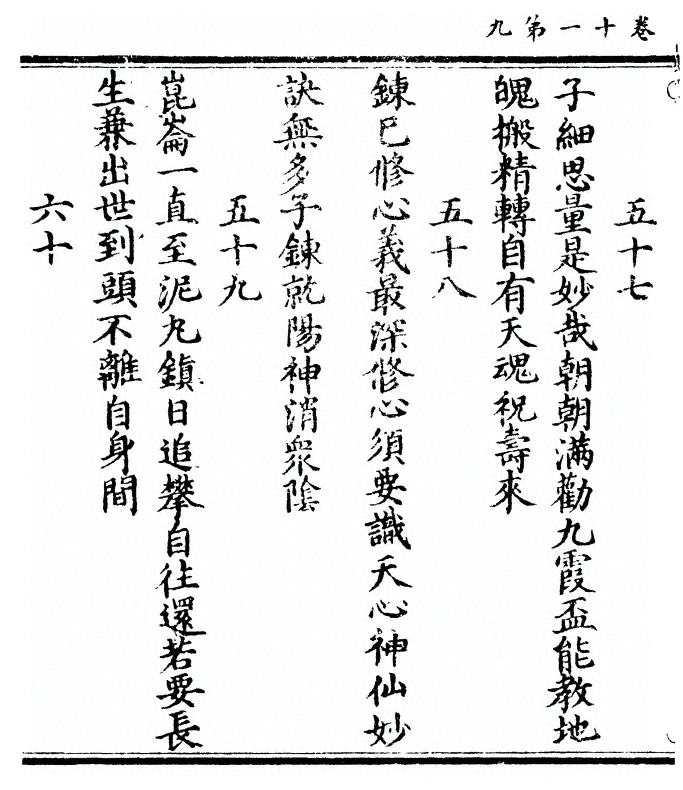 卷十一第九
五十七
子細思量是妙哉朝朝滿勸九霞盃能教地
魄搬精轉自有天魂祝壽來
五十八
鍊己修心義最深修心須要識天心神仙妙
訣無多子鍊就陽神消衆陰
五十九
崑崙一直至泥丸鎮日追攀自往還若要長
生兼出世到頭不離自身間
六十